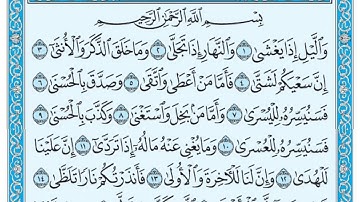 بِسْمِ اللَّهِ الرَّحْمَٰنِ الرَّحِيمِ
وَاللَّيْلِ إِذَا يَغْشَىٰ ١ وَالنَّهَارِ إِذَا تَجَلَّىٰ ٢ وَمَا خَلَقَ الذَّكَرَ وَالْأُنثَىٰ ٣
إِنَّ سَعْيَكُمْ لَشَتَّىٰ ٤ فَأَمَّا مَنْ أَعْطَىٰ وَاتَّقَىٰ ٥ وَصَدَّقَ بِالْحُسْنَىٰ ٦
فَسَنُيَسِّرُهُ لِلْيُسْرَىٰ ٧ وَأَمَّا مَن بَخِلَ وَاسْتَغْنَىٰ ٨ وَكَذَّبَ بِالْحُسْنَىٰ ٩
فَسَنُيَسِّرُهُ لِلْعُسْرَىٰ ١٠ وَمَا يُغْنِي عَنْهُ مَالُهُ إِذَا تَرَدَّىٰ ١١ إِنَّ عَلَيْنَا
لَلْهُدَىٰ ١٢ وَإِنَّ لَنَا لَلْآخِرَةَ وَالْأُولَىٰ ١٣ فَأَنذَرْتُكُمْ نَارًا تَلَظَّىٰ ١٤